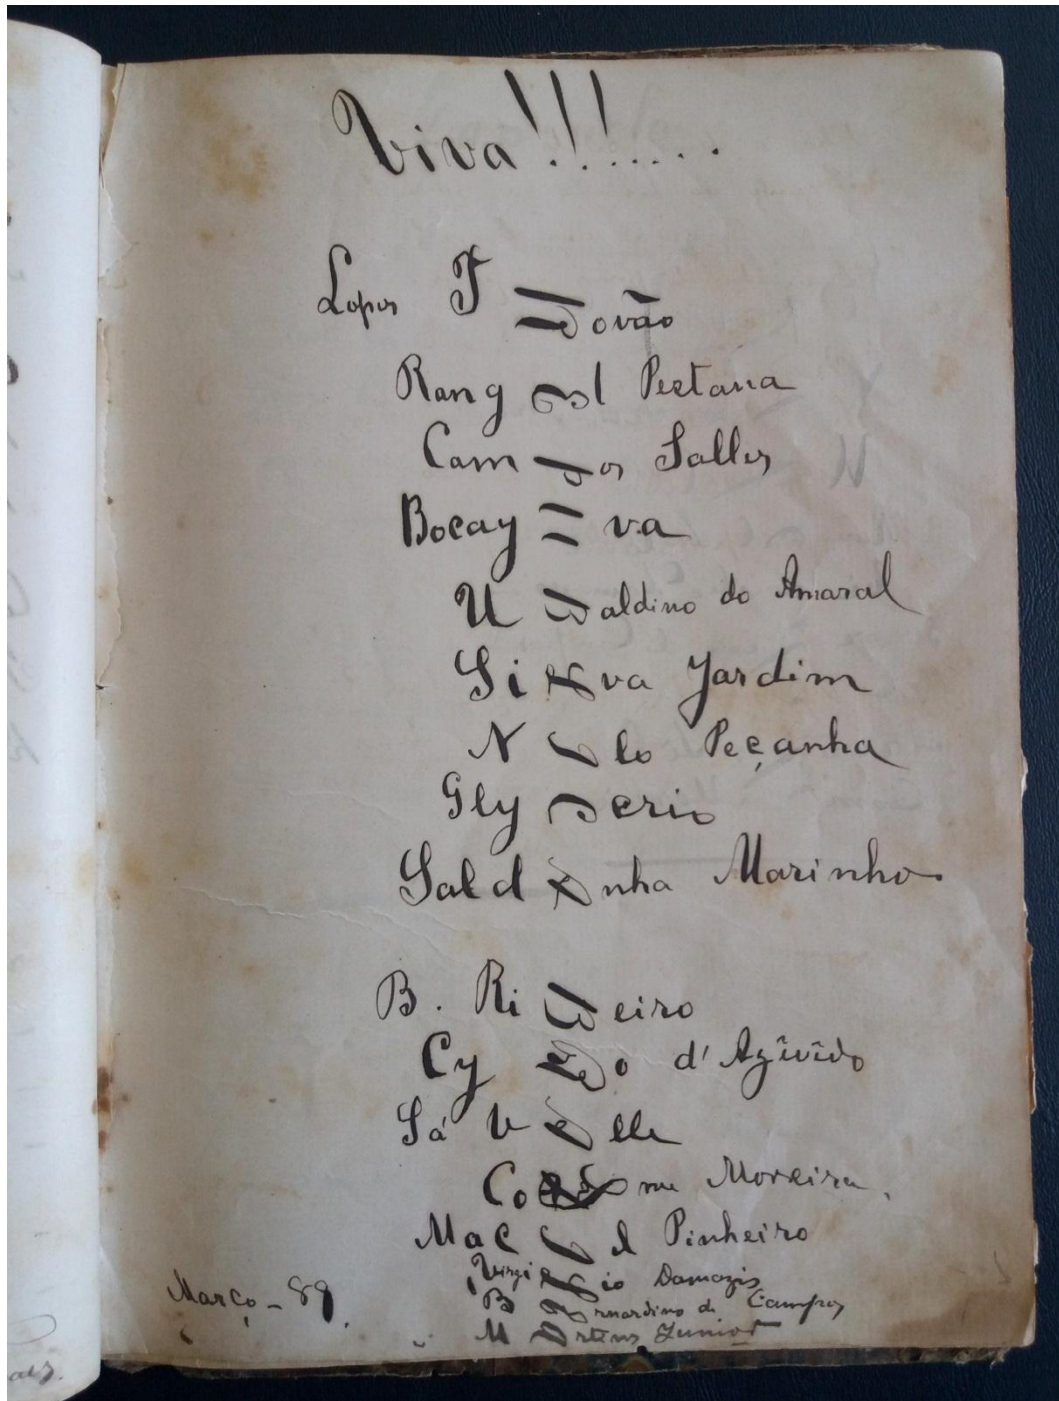 Viva!!!......
Lopes Trovão
Rangel Pestana
Campos Salles
Bocayuva
Ubaldino do Amaral
Silva Jardim
Nilo Peçanha
Glycerio
Saldanha Marinho
B. Ribeiro
Cyro d'Azevêdo
Sá Valle
Cosme Moreira.
Maciel Pinheiro
Virgilio Damazio
Bernardino de Campos
Março - 89.
Martins Junior